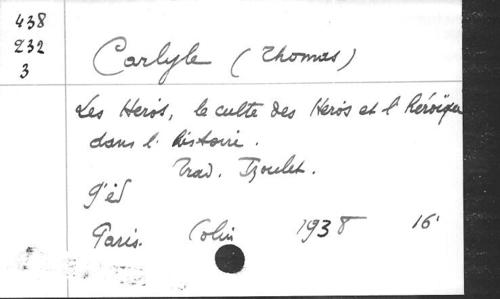 438
232
3
Carlyle (Thomas)
Les Heros, le culte des Heros et l'Héroïque
dans l'histoire.
Trad. Izoulet.
9'éd
Paris. Colin 1938 16'